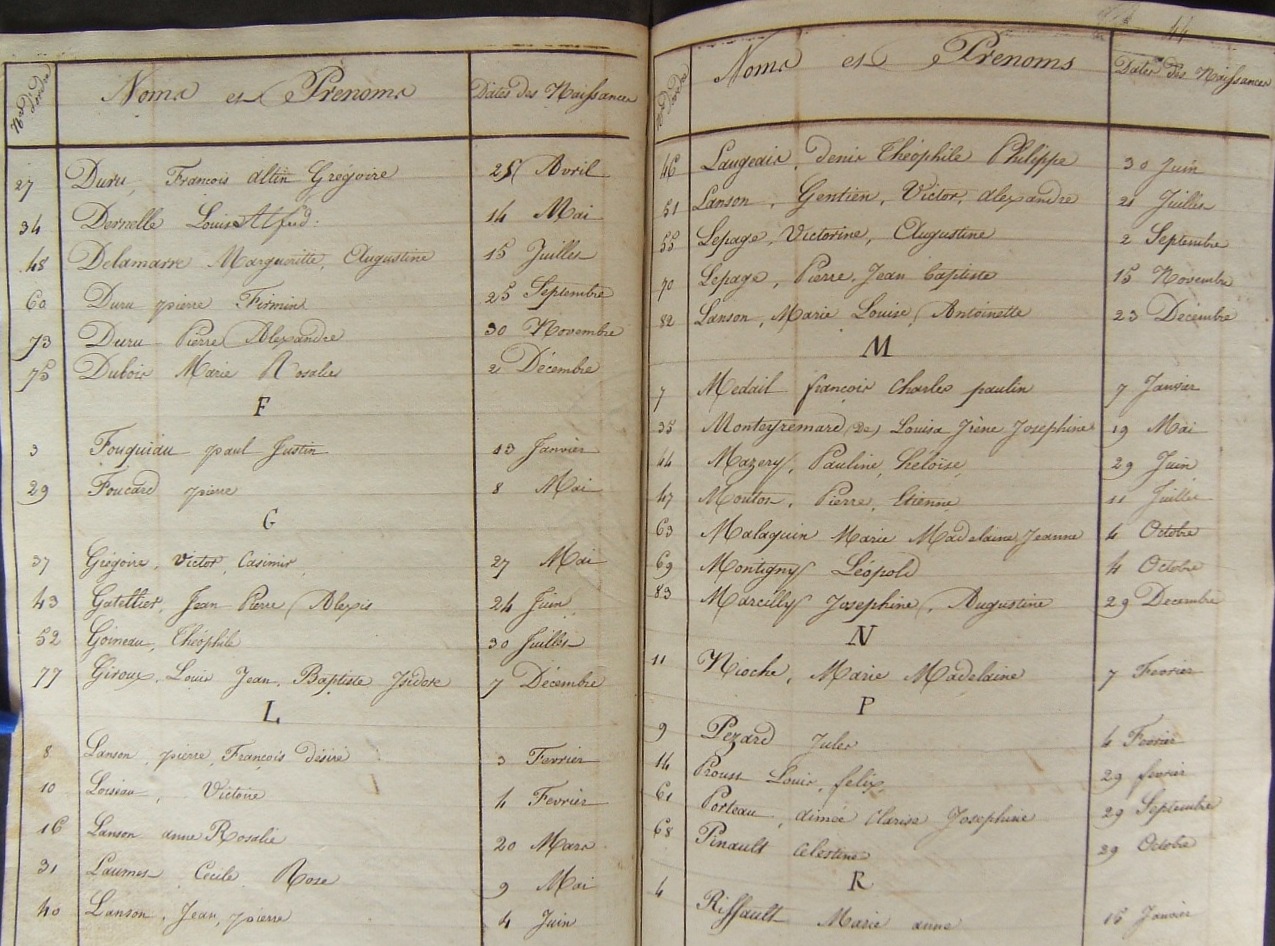 Nos d'ordre Noms et Prenoms Dates des Naissances
27 Duru, François altin Grégoire 25 Avril
34 Dernelle Louis Alfred. 14 Mai
48 Delamarre Margueritte, Augustine 15 Juillet
60 Duru pierre Firmin 25 Septembre
73 Duru Pierre Alexandre 30 Novembre
75 Dubois Marie Rosalie 2 Décembre
F
3 Fouquiau paul Justin 13 Janvier
29 Foucard pierre 8 Mai
G
37 Grégoire, Victor, Casimir, 27 Mai
43 Gatellier, Jean Pierre Alexis 24 Juin
52 Goineau, Théophile 30 Juillet
77 Giroux, Louis Jean, Baptiste Isidore 7 Décembre
L
8 Lanson, pierre, François désiré 3 Fevrier
10 Loiseau, Victoire 4 Fevrier
16 Lanson anne Rosalie 20 Mars
31 Laumes Cecile Rose 9 Mai
40 Lanson, Jean, pierre 4 Juin
44
Nos d'ordre Noms et Prenoms Dates des Naissances
46 Laugeais, denis Théophile Philippe 30 Juin
51 Lanson, Gentien, Victor, alexandre 21 Juillet
55 Lepage, Victorine, Augustine 2 Septembre
70 Lepage, Pierre, Jean baptiste 15 Novembre
82 Lanson, Marie Louise, Antoinette 23 Décembre
M
7 Medail françois Charles paulin 7 Janvier
35 Monteyremard (De) Louisa Irène Josephine 19 Mai
44 Mazery, Pauline, heloïse, 29 Juin
47 Moutos, Pierre, Etienne 11 Juillet
63 Malaquin Marie Madelaine Jeanne 4 Octobre
69 Montigny Léopold 4 Octobre
83 Marcilly Josephine, Augustine 29 Decembre
N
11 Nioche, Marie Madelaine 7 Fevrier
P
9 Pezard Jules 4 Fevrier
14 Proust Louis, felix, 29 fevrier
61 Porteau, aimée Clarise Josephine 29 Septembre
68 Pinault Celestine 29 Octobre
R
4 Riffault Marie anne 15 Janvier